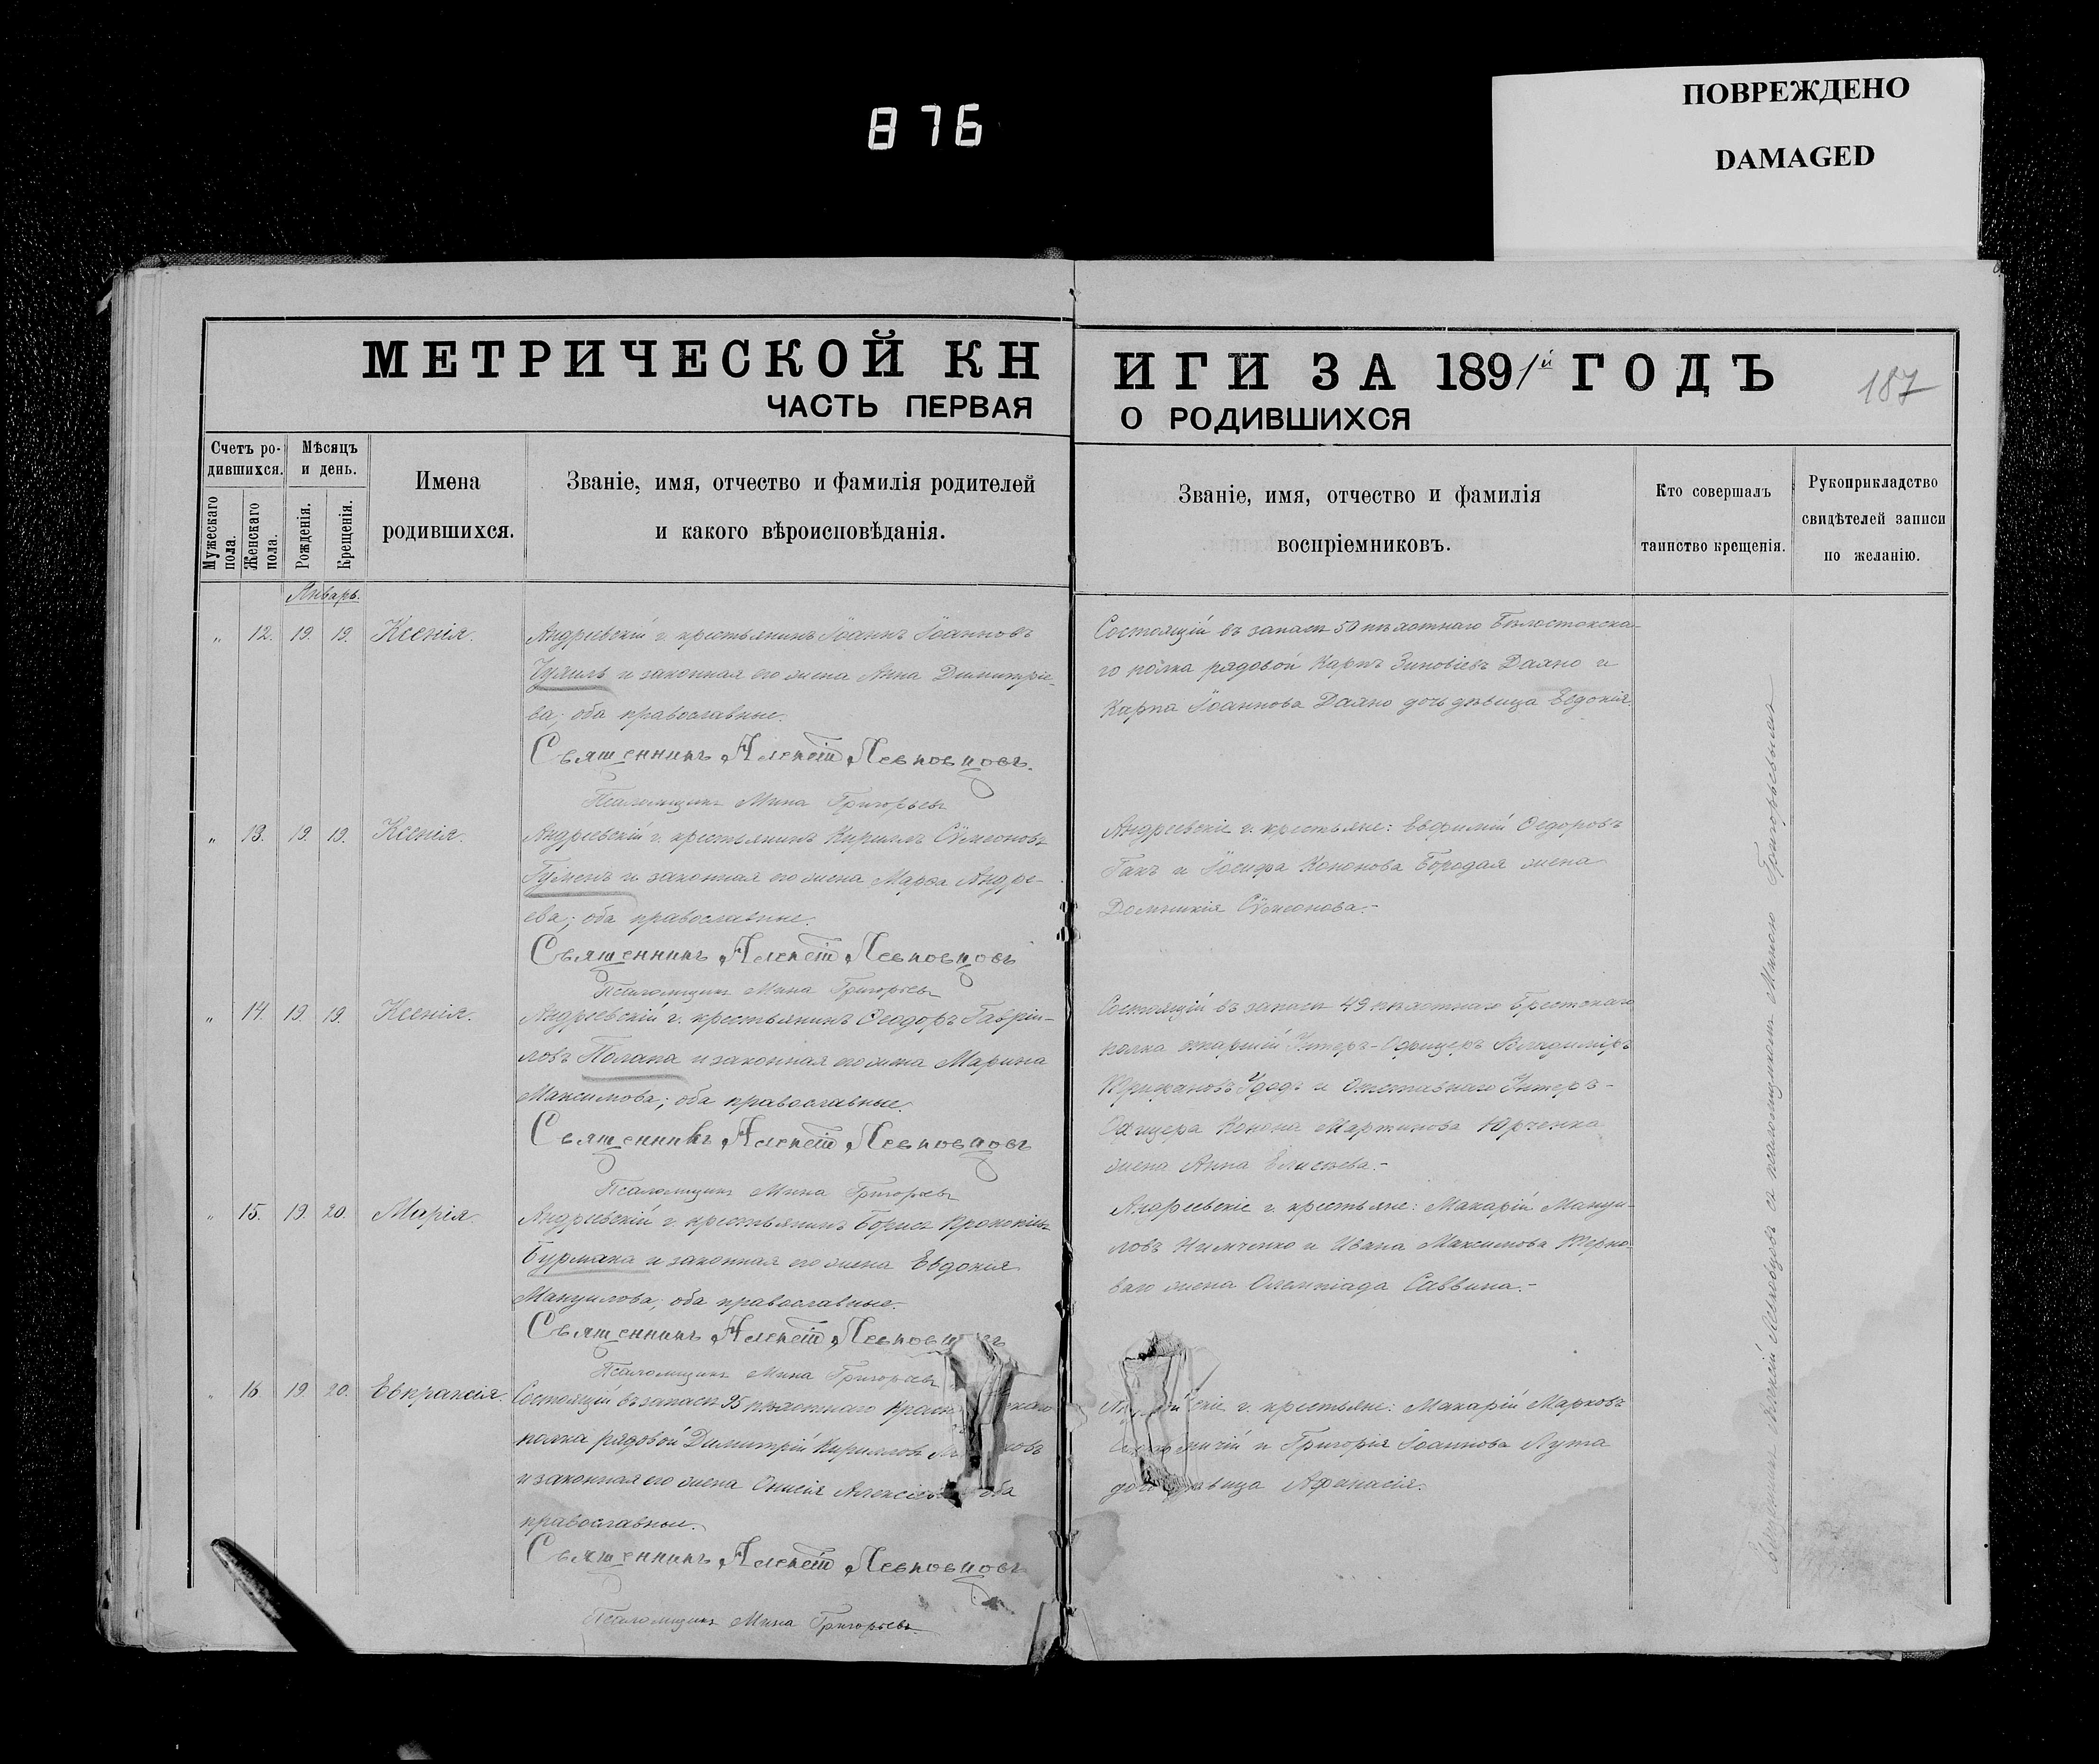 876
ПОВРЕЖДЕНО
DAMAGED
МЕТРИЧЕСКОЙ КНИГИ ЗА 1891й ГОДЪ
187
ЧАСТЬ ПЕРВАЯ О РОДИВШИХСЯ
Счетъ ро-
дившихся.
Мужескаго пола.
Женскаго пола.
Мѣсяцъ
и день.
Рожденія.
Крещенія.
Имена
родившихся.
Званіе, имя, отчество и фамилія родителей
и какого вѣроисповѣданія.
Званіе, имя, отчество и фамилія
воспріемниковъ.
Кто совершалъ
таинство крещенія.
Рукоприкладство
свидѣтелей записи
по желанію.
Январь.
" 12. 19. 19. Ксенія.
Андреевскій г. крестьянинъ Іоаннъ Іоанновъ
и законная его жена Анна Димитріе-
ва; оба православные.
Священникъ Алексій Левковцовъ.
Псаломщикъ Мина Григорьевъ
Состоящій въ запасѣ 50 пѣхотнаго Бѣлостокска-
го полка рядовой Карпъ Зиновіевъ Даяно и
Карпа Іоаннова Даяно дочь дѣвица Евдокія.
" 13. 19. 19. Ксенія.
Андреевскій г. крестьянинъ Кириллъ Сѵмеоновъ
Гуменъ и законная его жена Марѳа Андре-
ева; оба православные.
Священникъ Алексій Левковцовъ
Псаломщикъ Мина Григорьевъ
Андреевскіе г. крестьяне: Евфимій Ѳедоровъ
Гакъ и Іосифа Кононова Бородая жена
Домникія Сѵмеонова.-
" 14. 19. 19. Ксенія.
Андреевскій г. крестьянинъ Ѳеодоръ Гавріи-
ловъ Полапа и законная его жена Марина
Максимова; оба православные.
Священникъ Алексій Левковцовъ
Псаломщикъ Мина Григорьевъ
Состоящій въ запасѣ 49 пѣхотнаго Брестскаго
полка старшій Унтеръ-Офицеръ Владиміръ
Удодъ и Отставнаго Унтеръ-
Офицера Конона Мартинова Юрченка
жена Анна Елисѣева.-
" 15. 19. 20. Марія.
Андреевскій г. крестьянинъ Борисъ Прокопіевъ
Бурмака и законная его жена Евдокія
Мануилова; оба православные.
Священникъ Алексій Левковцовъ
Псаломщикъ Мина Григорьевъ
Андреевскіе г. крестьяне: Макарій Мануи-
ловъ Нимченко и Ивана Максимова Терно-
ваго жена Олимпіада Саввина.-
" 16 19. 20. Евпраксія.
Состоящій въ запасѣ 95 пѣхотнаго
полка рядовой Димитрій Кирилловъ
и законная его жена Онисія оба
православные.
Священникъ Алексій Левковцовъ
Псаломщикъ Мина Григорьевъ.
г. крестьяне: Макарій Марковъ
и Григорія Іоаннова Лута
дочь дѣвица Афанасія.
Священникъ Алексій Левковцовъ съ псаломщикомъ Миною Григорьевымъ